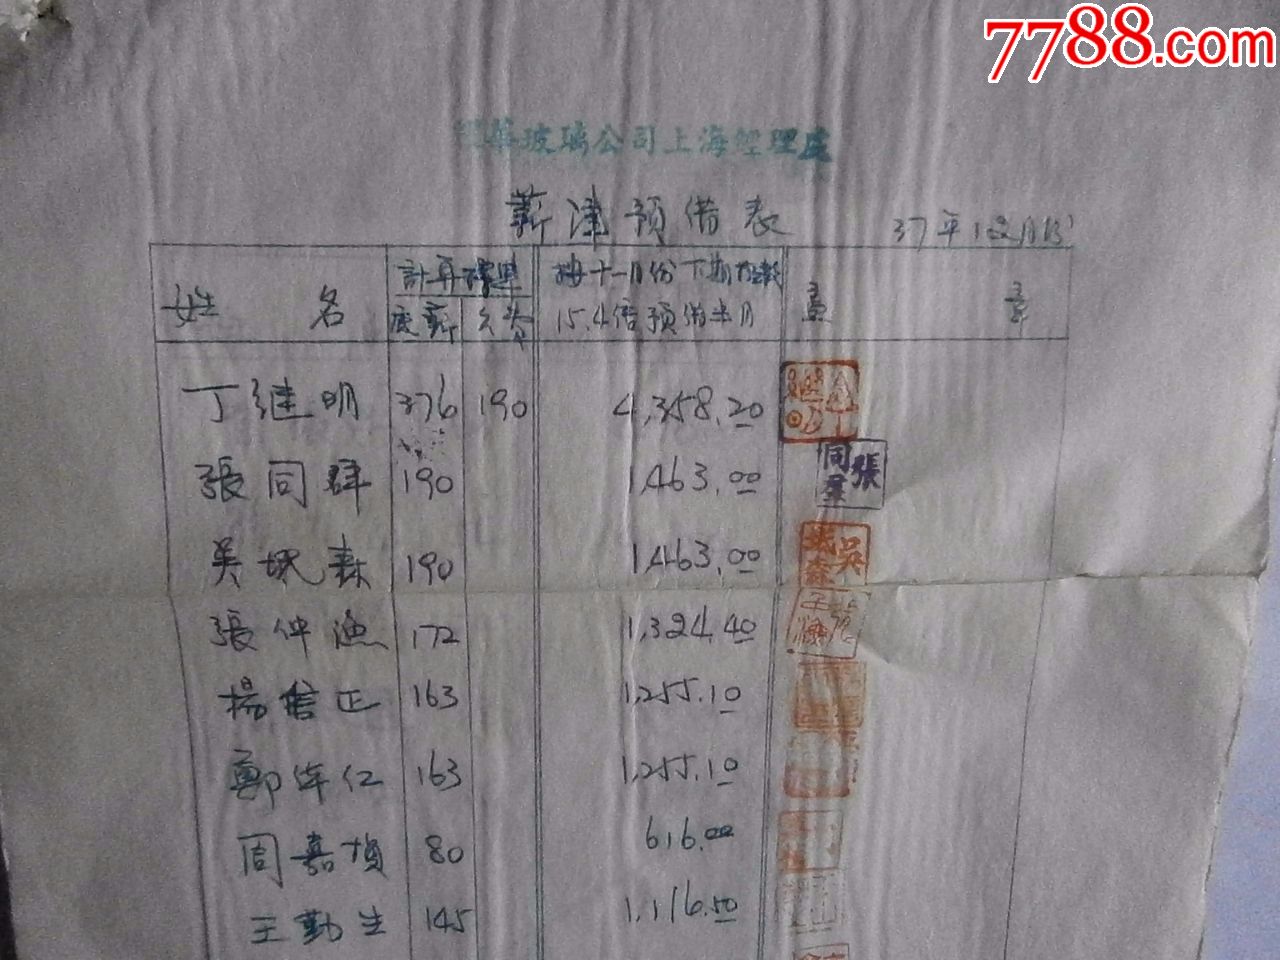 7788.com
華玻璃公司上海經理處
薪津預借表 37年12月份
姓 名 計算標準 按十一月份下期指數 蓋 章
底薪 公費 15.4倍預借半月
丁继明 376 190 4,358.20
張同群 190 1,463.00
張同羣
吴斌森 190 1,463.00
吳斌森
張仲漁 172 1,324.40
楊信正 163 1,255.10
鄭 仁 163 1,255.10
周嘉 80 616.00
王勤生 145 1,116.50